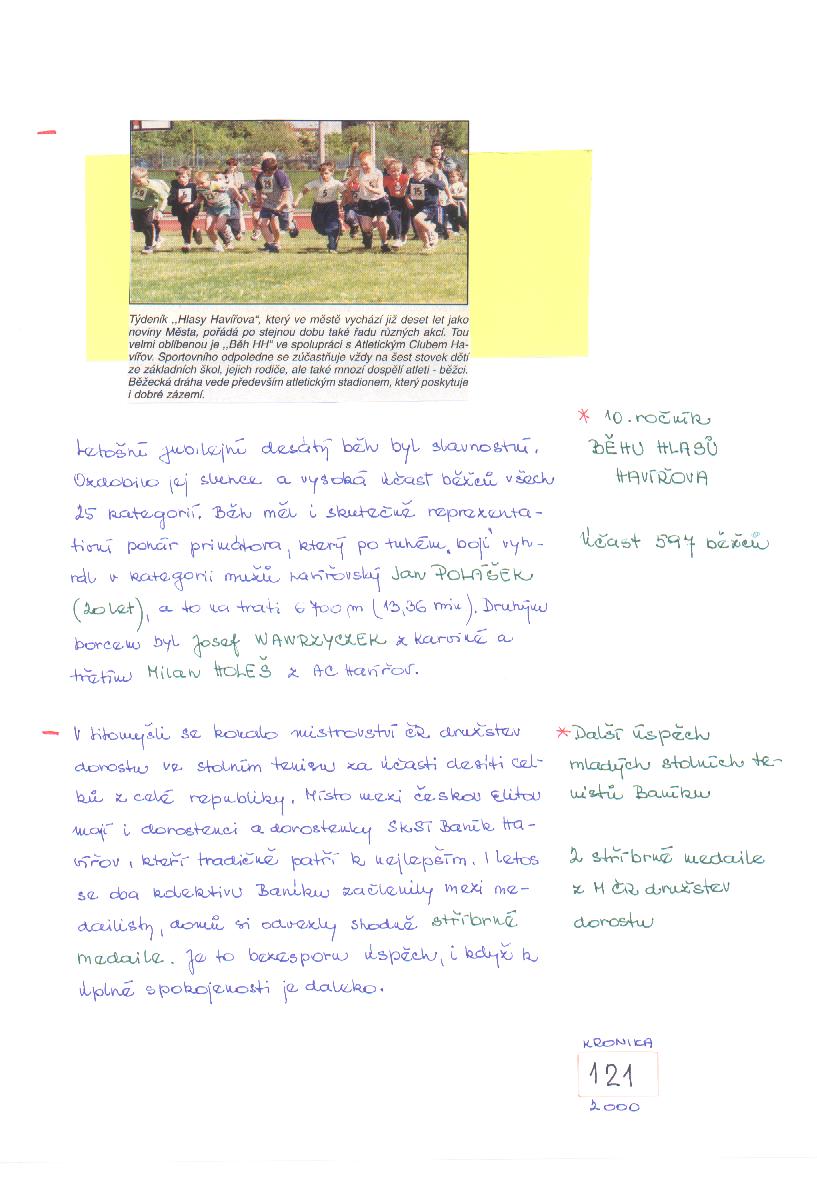 Týdeník ,,Hlasy Havířova", který ve městě vychází již deset let jako
noviny Města, pořádá po stejnou dobu také řadu různých akcí. Tou
velmi oblíbenou je ,,Běh HH" ve spolupráci s Atletickým Clubem Ha-
vířov. Sportovního odpoledne se zúčastňuje vždy na šest stovek dětí
ze základních škol, jejich rodiče, ale také mnozí dospělí atleti - běžci.
Běžecká dráha vede především atletickým stadionem, který poskytuje
i dobré zázemí.
* 10. ročník
BĚHU HLASŮ
HAVÍŘOVA
Účast 597 běžců
Letošní jubilejní desátý běh byl slavnostní.
Ozdobilo jej slunce a vysoká účast běžců všech
25 kategorií. Běh měl i skutečně reprezenta-
tivní pohár primátora, který po tuhém boji vyh-
rál v kategorii mužů havířovský Jan POLÁŠEK
(20 let), a to na trati 6 700 m (13,36 min). Druhým
borcem byl Josef WAWRZYCZEK z Karviné a
třetím Milan HOLEŠ z AC Havířov.
- V Litomyšli se konalo mistrovství ČR družstev
dorostu ve stolním tenisu za účasti desíti cel-
ků z celé republiky. Místo mezi českou elitou
mají i dorostenci a dorostenky SKST Baník Ha-
vířov, kteří tradičně patří k nejlepším. I letos
se oba kolektivy Baníku začlenily mezi me-
dailisty, domů si odvezly shodně stříbrné
medaile. Je to bezesporu úspěch, i když k
úplné spokojenosti je daleko.
* Další úspěch
mladých stolních te-
nistů Baníku
2 stříbrné medaile
z M ČR družstev
dorostu
KRONIKA
121
2000